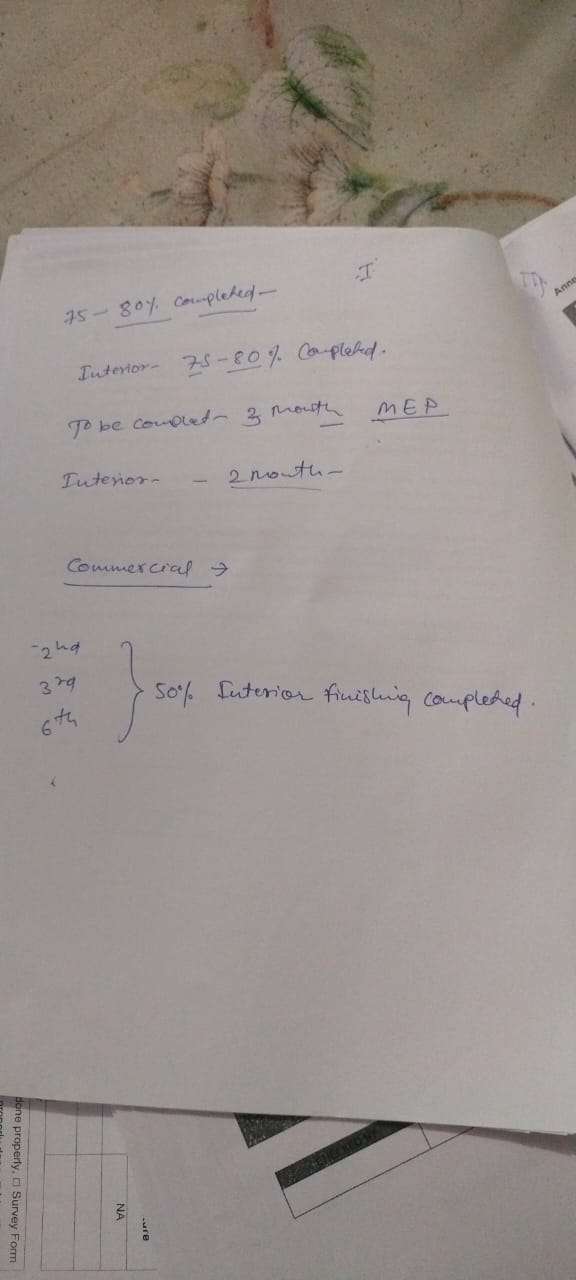 I
75-80% completed-
Interior- 75-80% Completed.
To be complet- 3 Month MEP
Interior- - 2 month-
Commercial →
2nd
3rd
6th
} 50% Interior finishing completed.
II)
Anne
done property, □ Survey Form
NA
ure